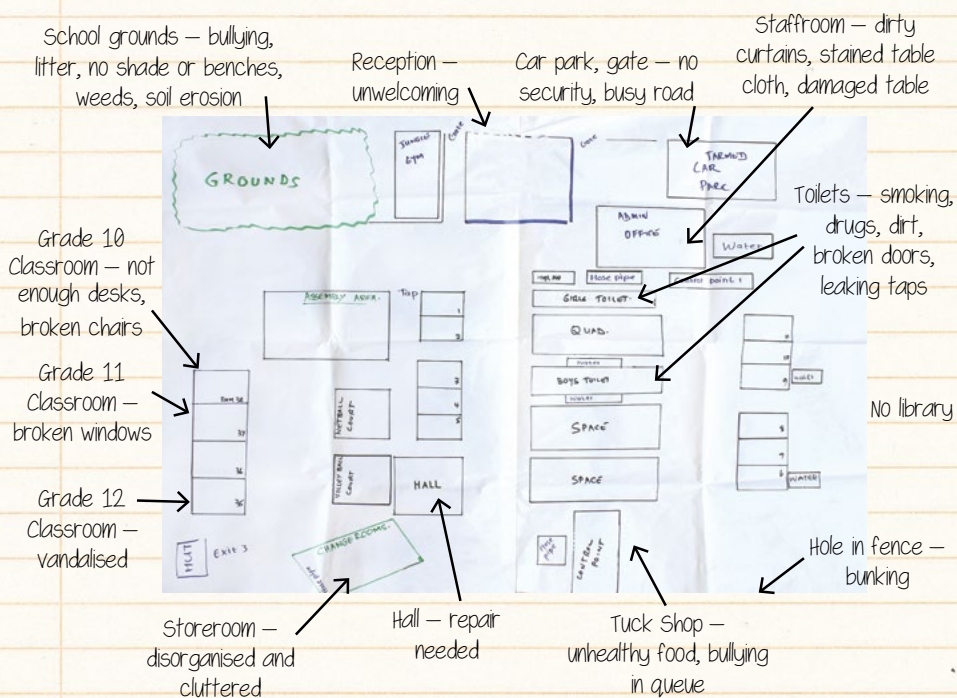 School grounds – bullying,
litter, no shade or benches,
weeds, soil erosion
Reception –
unwelcoming
Car park, gate – no
security, busy road
Staffroom – dirty
curtains, stained table
cloth, damaged table
Toilets – smoking,
drugs, dirt,
broken doors,
leaking taps
Grade 10
Classroom – not
enough desks,
broken chairs
Grade 11
Classroom –
broken windows
Grade 12
Classroom –
vandalised
No library
Hole in fence –
bunking
Storeroom –
disorganised and
cluttered
Hall – repair
needed
Tuck Shop –
unhealthy food, bullying
in queue
GROUNDS
GYM
CAR
PARK
ADMIN
OFFICE
Water
Hose pipe
point 1
GIRLS TOILET.
ASSEMBLY AREA.
Tap
QUAD.
Water
BOYS TOILET
Water
NETBALL
COURT
SPACE
VOLLEY BALL
COURT
HALL
SPACE
WATER
CHANGEROOMS.
HUT
Exit 3
CONTROL
POINT